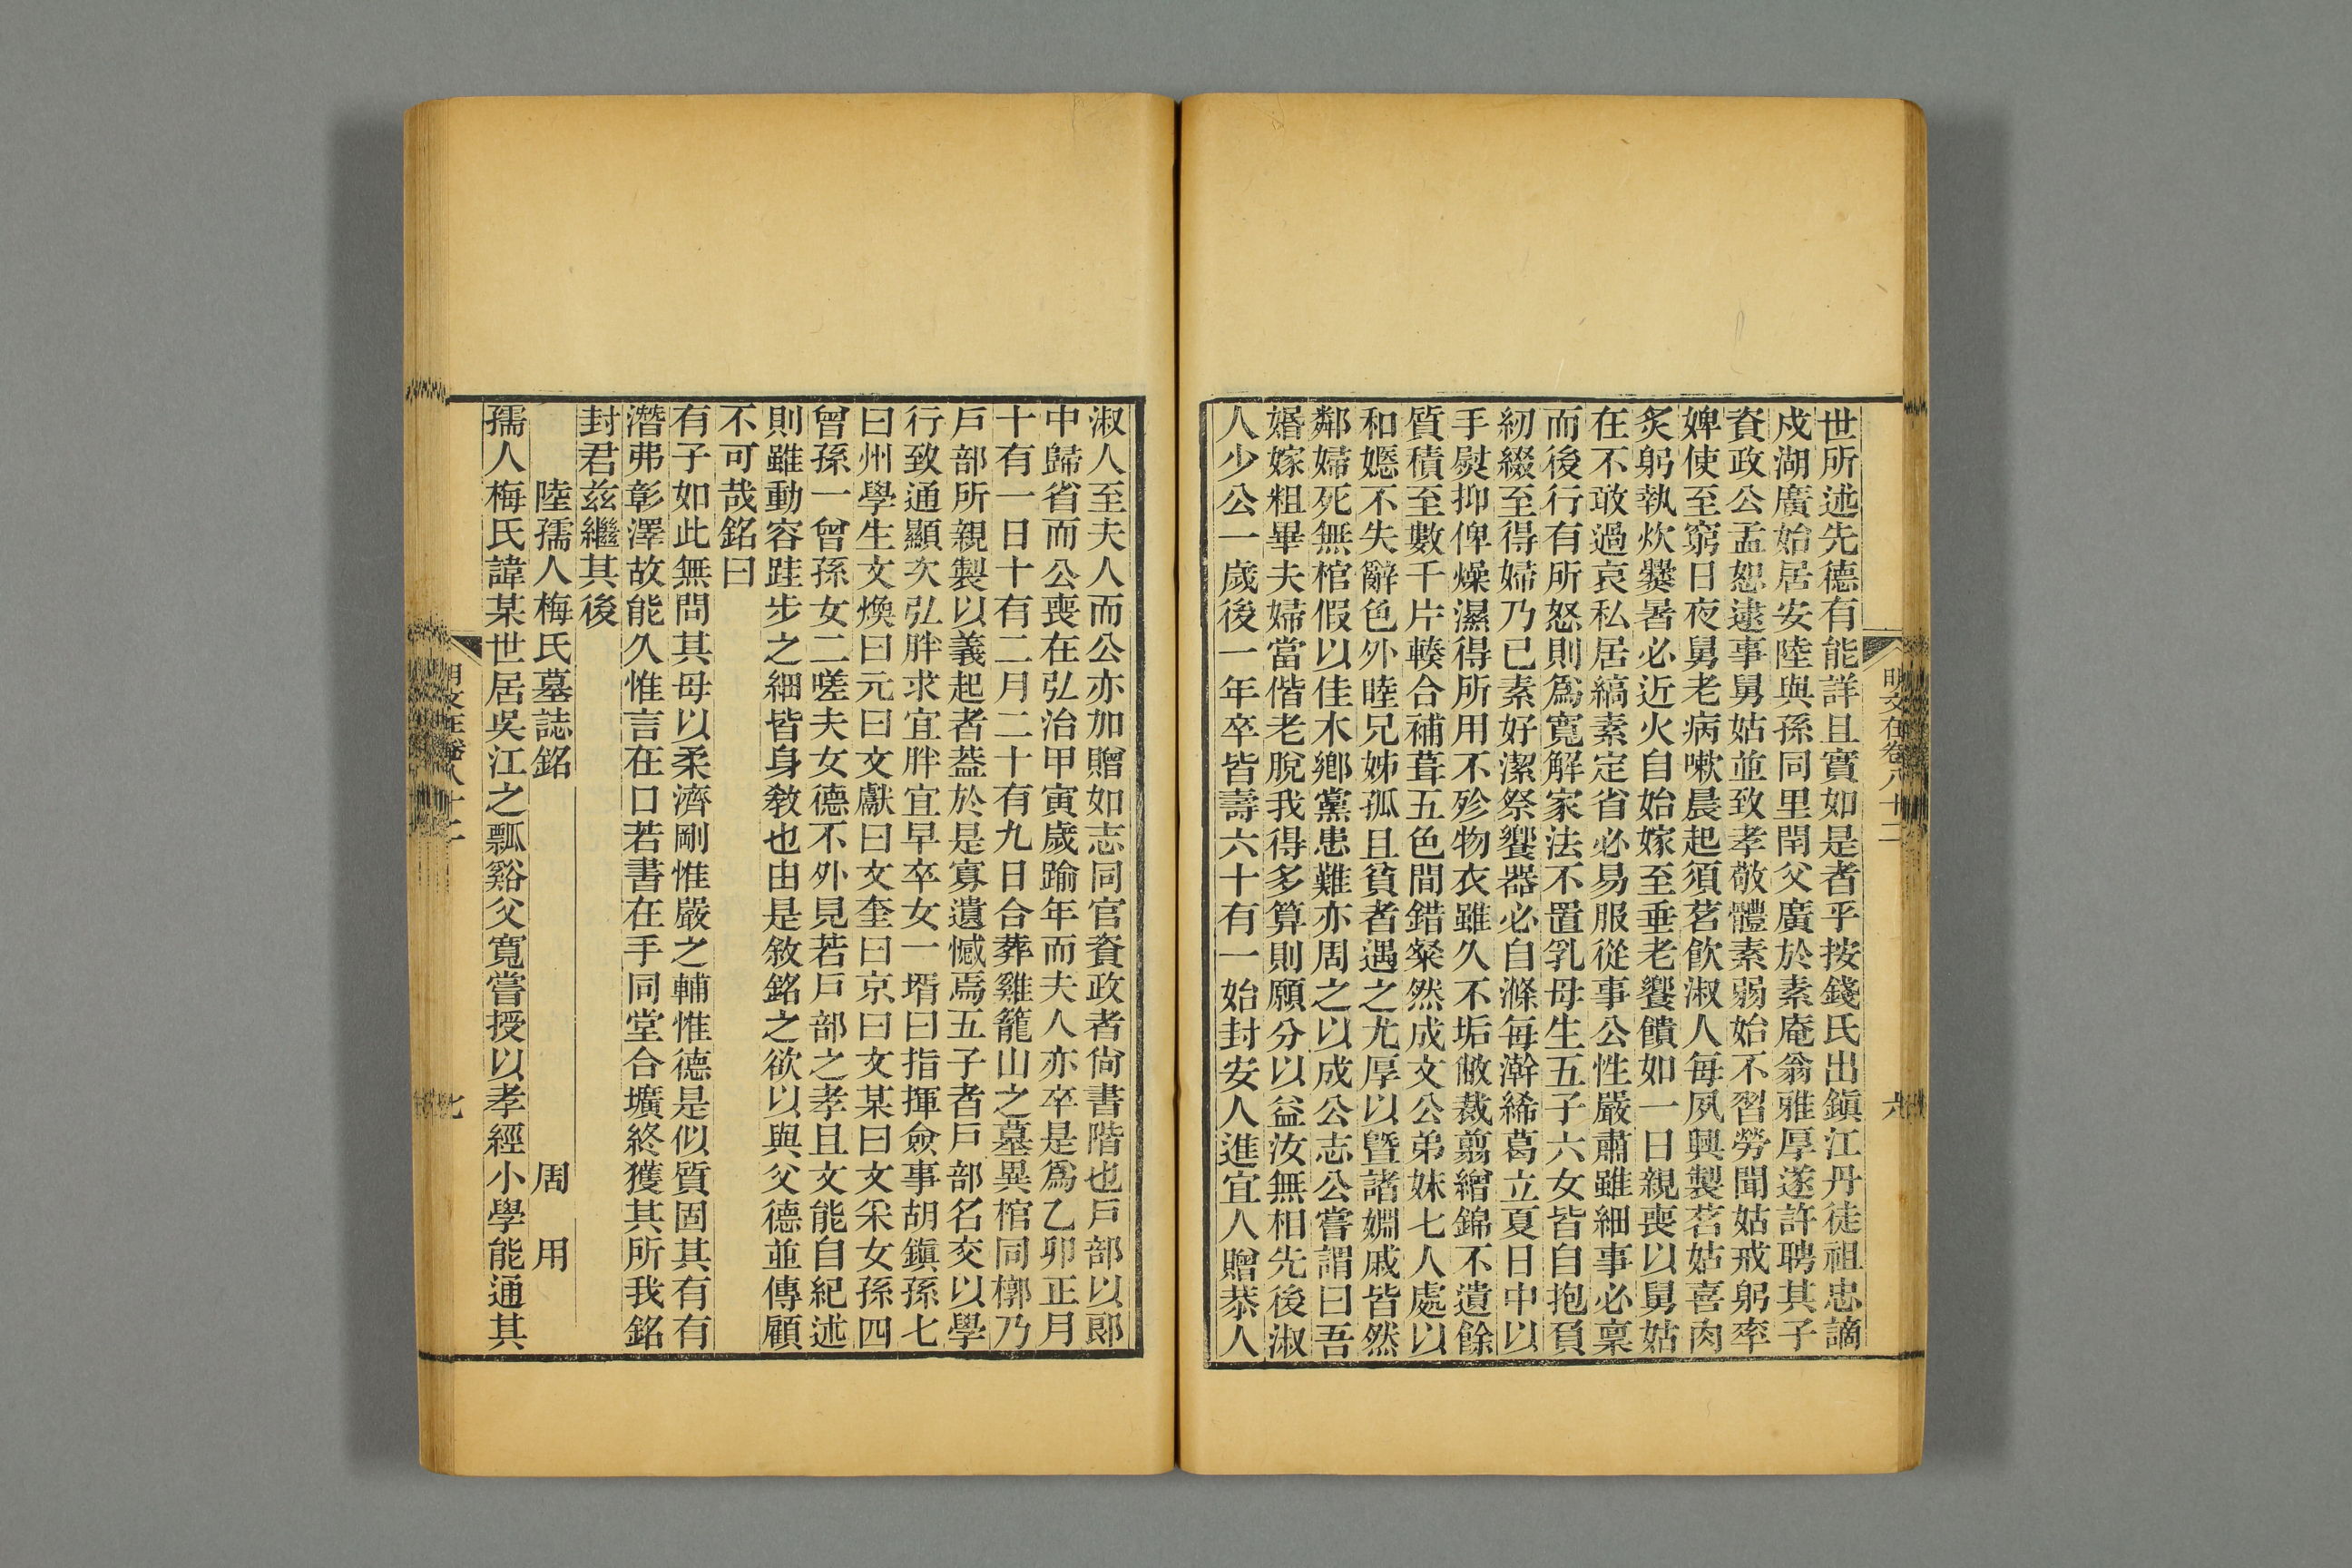 明文在卷八十二
六
世所述先德有能詳且實如是者乎按錢氏出鎮江丹徒祖忠謫
戍湖廣始居安陸與孫同里閈父廣於素庵翁雅厚遂許聘其子
資政公孟恕逮事舅姑並致孝敬體素弱始不習勞聞姑戒躬率
婢使至窮日夜舅老病嗽晨起須茗飲淑人每夙興製茗姑喜肉
炙躬執炊爨暑必近火自始嫁至垂老饔饋如一日親喪以舅姑
在不敢過哀私居縞素定省必易服從事公性嚴肅雖細事必稟
而後行有所怒則爲寬解家法不置乳母生五子六女皆自抱負
紉綴至得婦乃已素好潔祭饗器必自滌每澣絺葛立夏日中以
手熨抑俾燥濕得所用不殄物衣雖久不垢敝裁翦繒錦不遺餘
質積至數千片輳合補葺五色間錯粲然成文公弟妹七人處以
和嫕不失辭色外睦兄姊孤且貧者遇之尤厚以曁諸婣戚皆然
鄰婦死無棺假以佳木鄉黨患難亦周之以成公志公嘗謂曰吾
婚嫁粗畢夫婦當偕老脫我得多算則願分以益汝無相先後淑
人少公一歲後一年卒皆壽六十有一始封安人進宜人贈恭人
淑人至夫人而公亦加贈如志同官資政者尙書階也戶部以郎
中歸省而公喪在弘治甲寅歲踰年而夫人亦卒是爲乙卯正月
十有一日十有二月二十有九日合葬雞籠山之墓異棺同槨乃
戶部所親製以義起者葢於是寡遺憾焉五子者戶部名交以學
行致通顯次弘胖求宜胖宜早卒女一壻曰指揮僉事胡鎮孫七
曰州學生文煥曰元曰文獻曰文奎曰京曰文某曰文采女孫四
曾孫一曾孫女二嗟夫女德不外見若戶部之孝且文能自紀述
則雖動容跬步之細皆身敎也由是敘銘之欲以與父德並傳顧
不可哉銘曰
有子如此無問其母以柔濟剛惟嚴之輔惟德是似質固其有有
潛弗彰澤故能久惟言在口若書在手同堂合壙終獲其所我銘
封君兹繼其後
陸孺人梅氏墓誌銘　周用
孺人梅氏諱某世居吳江之瓢谿父寬嘗授以孝經小學能通其
明文在卷八十二
七